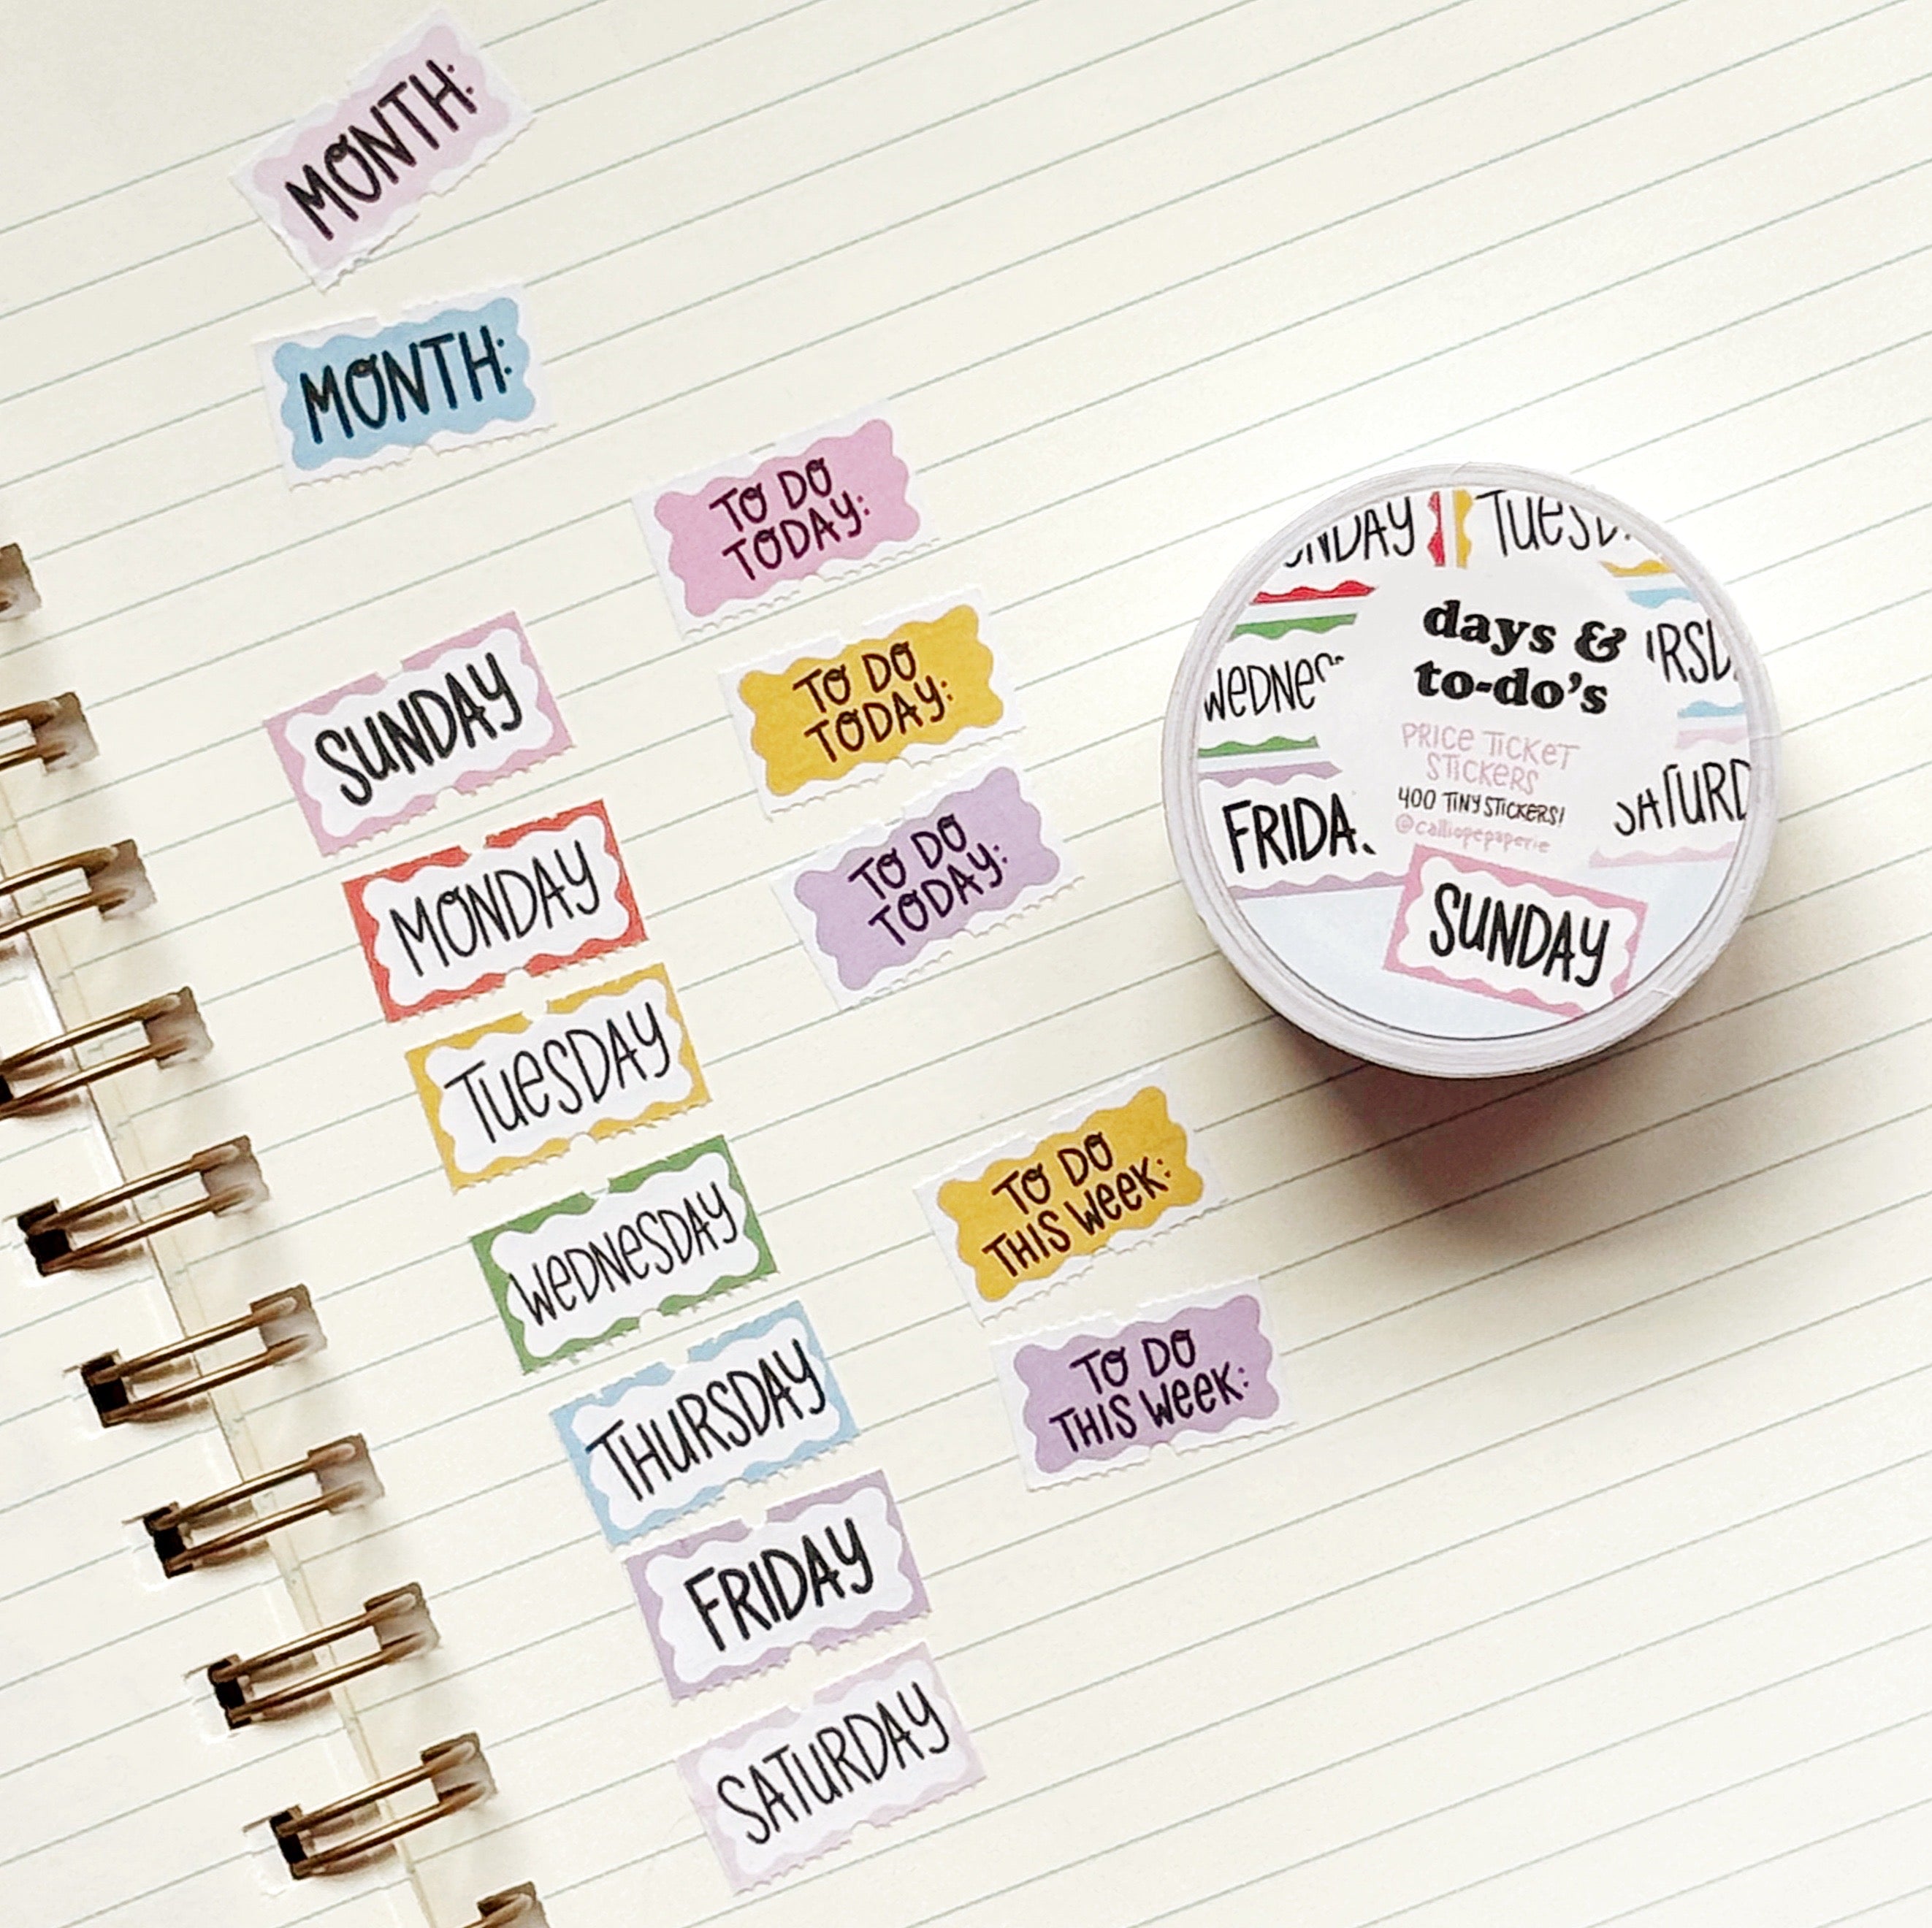 MONTH:
MONTH:
TO DO
TODAY:
TO DO
TODAY:
TO DO
TODAY:
SUNDAY
MONDAY
TUeSDAY
WeDNeSDAY
THURSDAY
FRIDAY
SATURDAY
TO DO
THIS Week:
TO DO
THIS Week:
days &
to-do's
PRICe TICKeT
STICKeRS
400 TINY STICKeRS!
@calliopepaperie
SUNDAY